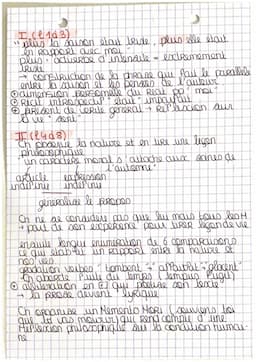 I. (l 1 à 3)
"plus la saison était triste, plus elle était
en rapport avec moi"
plus : adverbe d'intensité - extrêmement
triste
→ construction de la phrase qui fait le parallèle
entre la saison et les pensées de l'auteur
dimension personnelle du récit "moi"
récit introspectif "était" imparfait
présent de vérité général → réflexion sur
la vie
II. (l 4 à 8)
Ch observe la nature et en tire une leçon
philosophique
"un caractère moral s'attache aux scènes de
l'automne"
article expression
indéfini indéfinie
généralise le propos
Ch ne se considère pas que lui mais tous les H
→ part de son expérience pour tirer leçon de vie
ensuite longue énumération de 6 comparaisons
ce qui établit un rapport entre la nature et
nos vies
gradation verbes "tombent" "affaiblit" glacent"
Ch aborde fuite du temps (tempus fugit)
allitération en
→ la prose devient lyrique
Ch organise un Memento Mori (souviens toi
que tu vas mourir) qui rend compte d'une
réflexion philosophique sur la condition humai-
ne